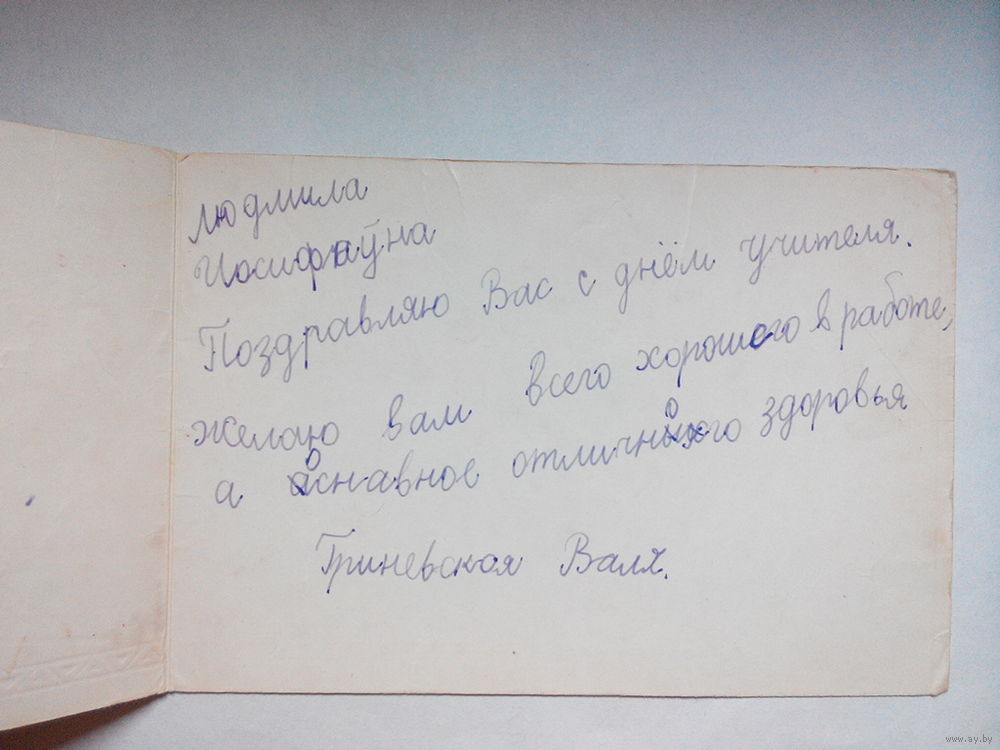 Людмила
Иосифаўна
Поздравляю Вас с днём учителя.
желаю вам всего хорошего в работе,
а оснавное отличного здоровья
Гриневская Валя.
www.ay.by